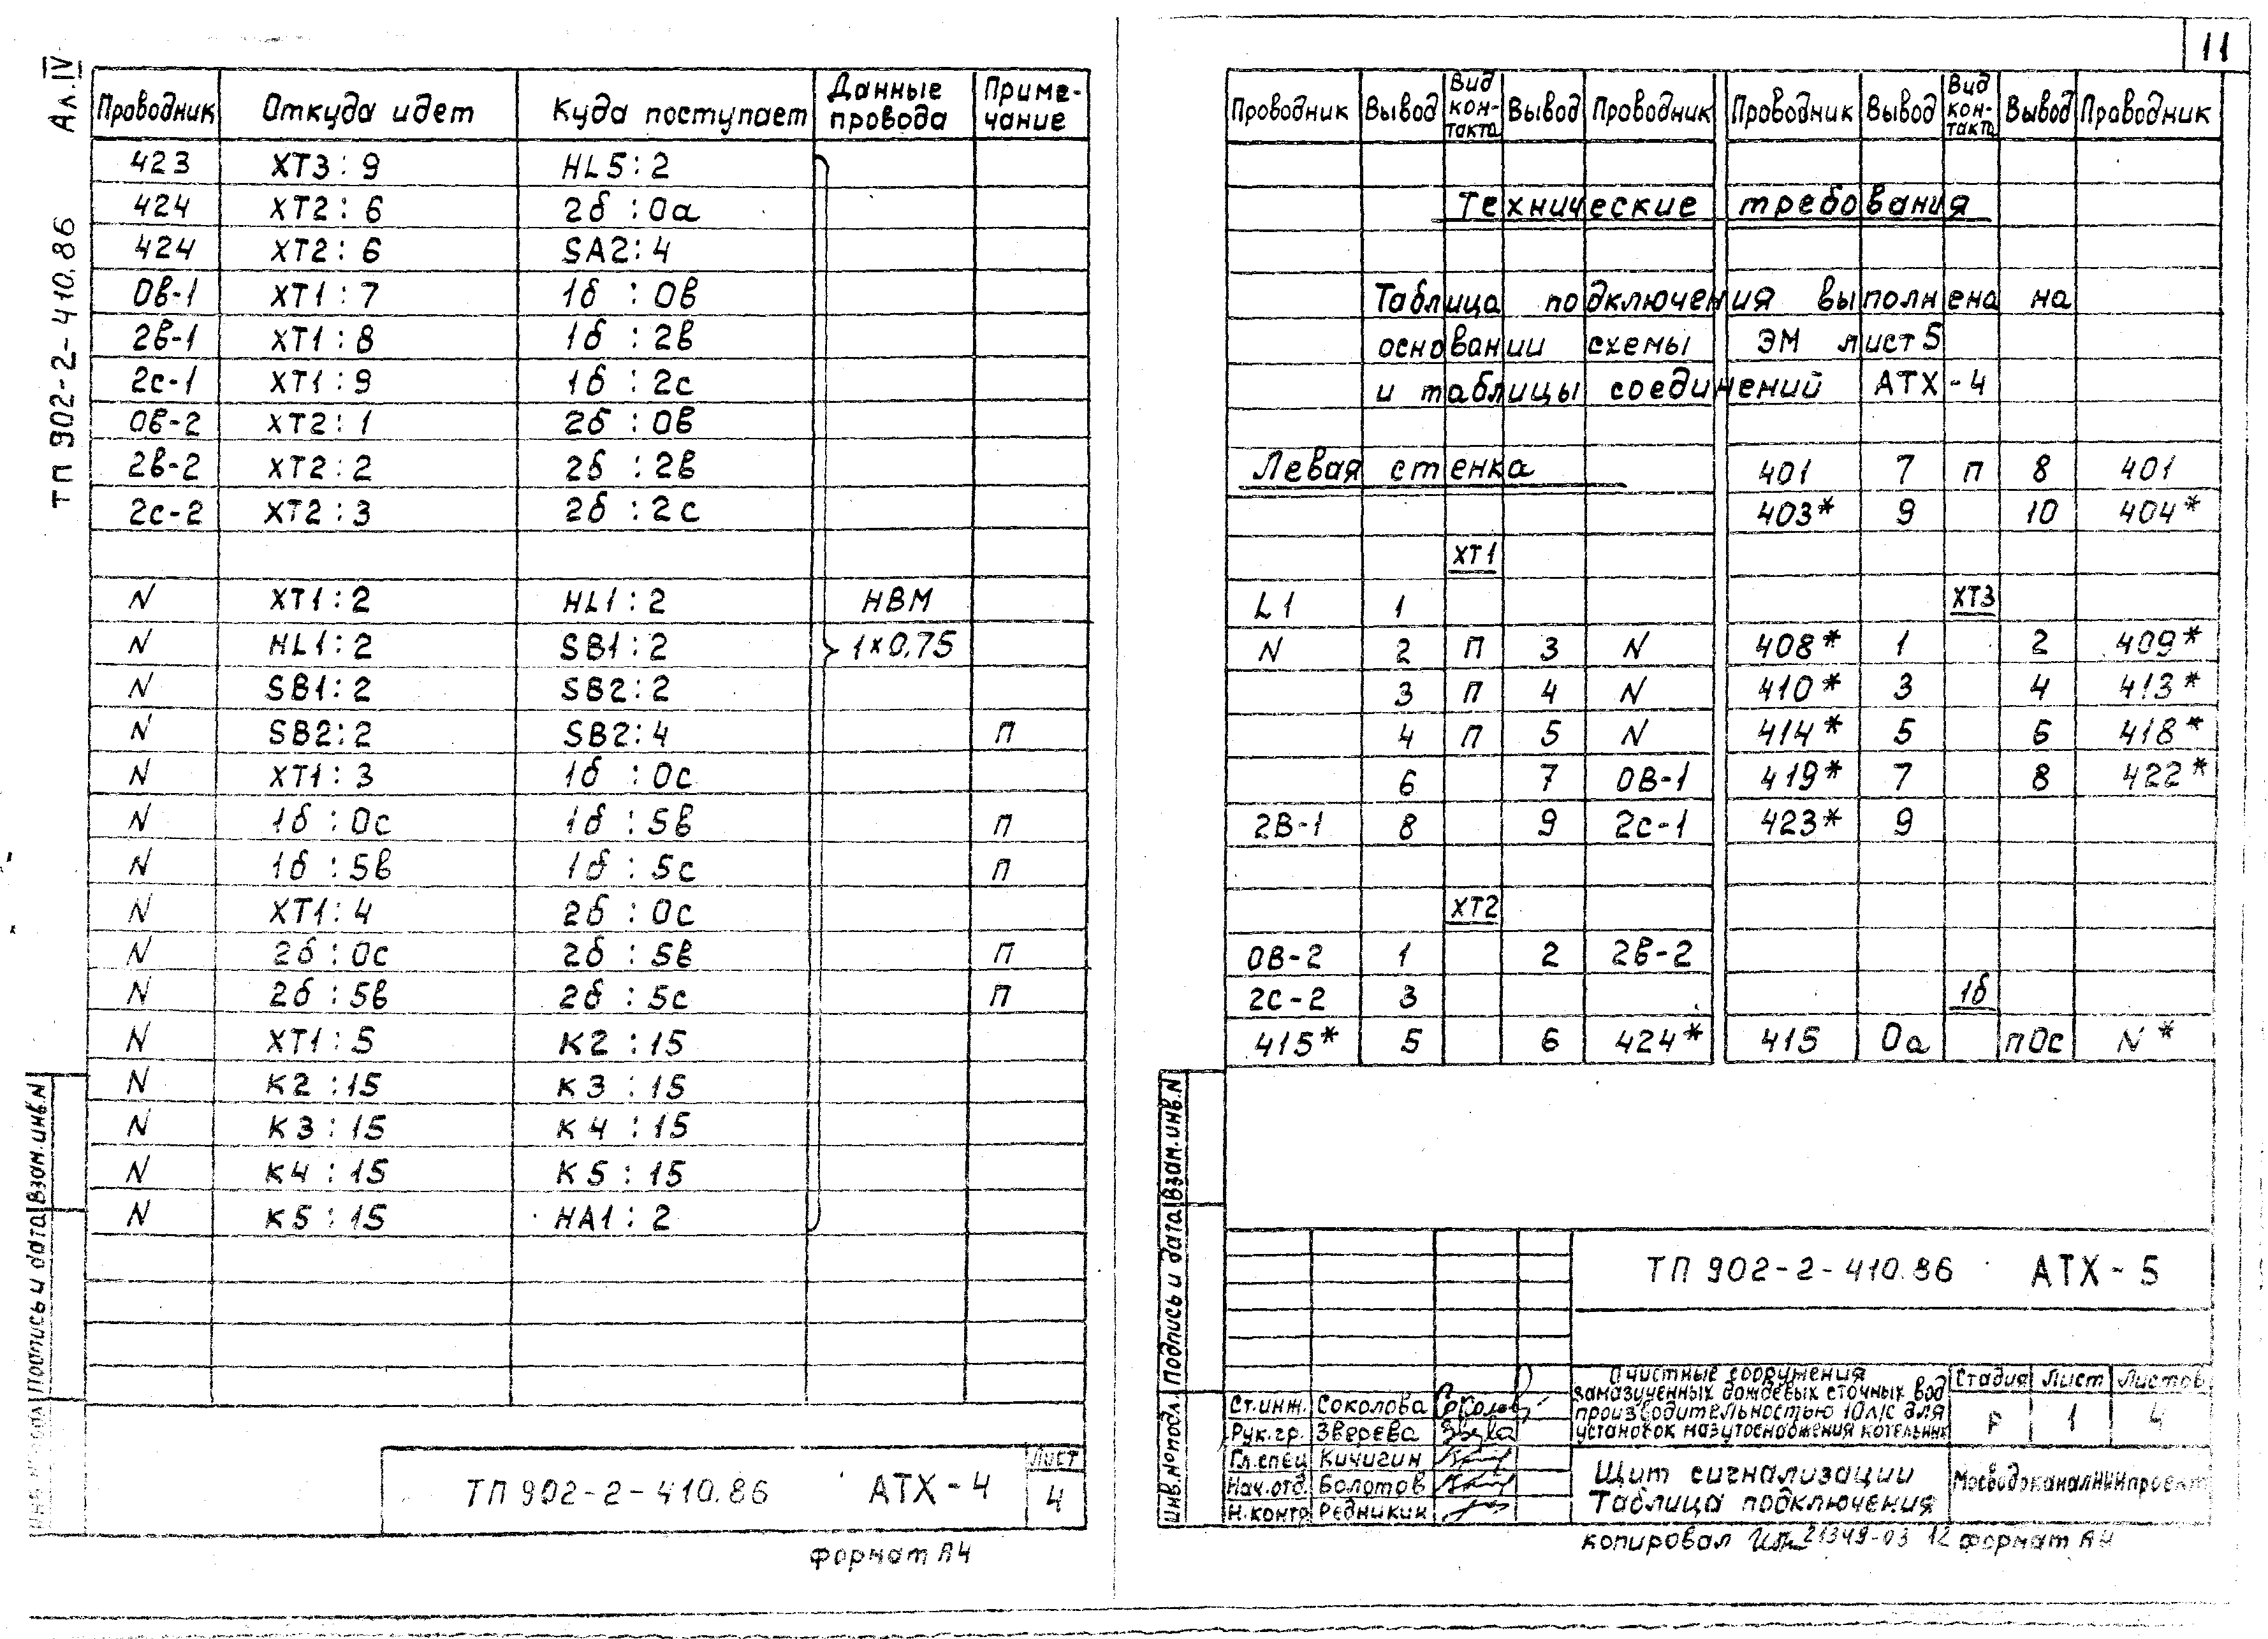 Ал. IV
ТП 902-2-410.86
Проводник Откуда идет Куда поступает Данные провода Примечание
423 XT3:9 HL5:2
424 XT2:6 2б :0а
424 XT2:6 SA2:4
0в-1 XT1:7 1б :0в
2в-1 XT1:8 1б :2в
2с-1 XT1:9 1б :2с
0в-2 XT2:1 2б :0в
2в-2 XT2:2 2б :2в
2с-2 XT2:3 2б :2с
N XT1:2 HL1:2 НВМ
N HL1:2 SB1:2 1×0,75
N SB1:2 SB2:2
N SB2:2 SB2:4 п
N XT1:3 1б :0с
N 1б :0с 1б :5в п
N 1б :5в 1б :5с п
N XT1:4 2б :0с
N 2б :0с 2б :5в п
N 2б :5в 2б :5с п
N XT1:5 K2 :15
N K2 :15 K3 :15
N K3 :15 K4 :15
N K4 :15 K5 :15
N K5 :15 HA1:2
Взам.инв.N
Подпись и дата
ТП 902-2-410.86 АТХ-4
Лист
4
формат А4
11
Проводник Вывод Вид контакта Вывод Проводник Проводник Вывод Вид контакта Вывод Проводник
Технические требования
Таблица подключения выполнена на
основании схемы ЭМ лист 5
и таблицы соединений АТХ-4
Левая стенка 401 7 п 8 401
403* 9 10 404*
XT1
L1 1 XT3
N 2 п 3 N 408* 1 2 409*
3 п 4 N 410* 3 4 413*
4 п 5 N 414* 5 6 418*
6 7 0В-1 419* 7 8 422*
2В-1 8 9 2с-1 423* 9
XT2
0В-2 1 2 2в-2
2С-2 3 1б
415* 5 6 424* 415 0а п0с N*
Взам.инв.N
Подпись и дата
Инв.№подл.
ТП 902-2-410.86 АТХ-5
Очистные сооружения
замазученных дождевых сточных вод
производительностью 10л/с для
установок мазутоснабжения котельных
Стадия Лист Листов
Р 1 4
Ст.инж. Соколова
Рук.гр. Зверева
Гл.спец Кичигин
Нач.отд. Болотов
Н.контр Редникин
Щит сигнализации
Таблица подключения
МосводоканалНИИпроект
копировал 21349-03 12 формат А4